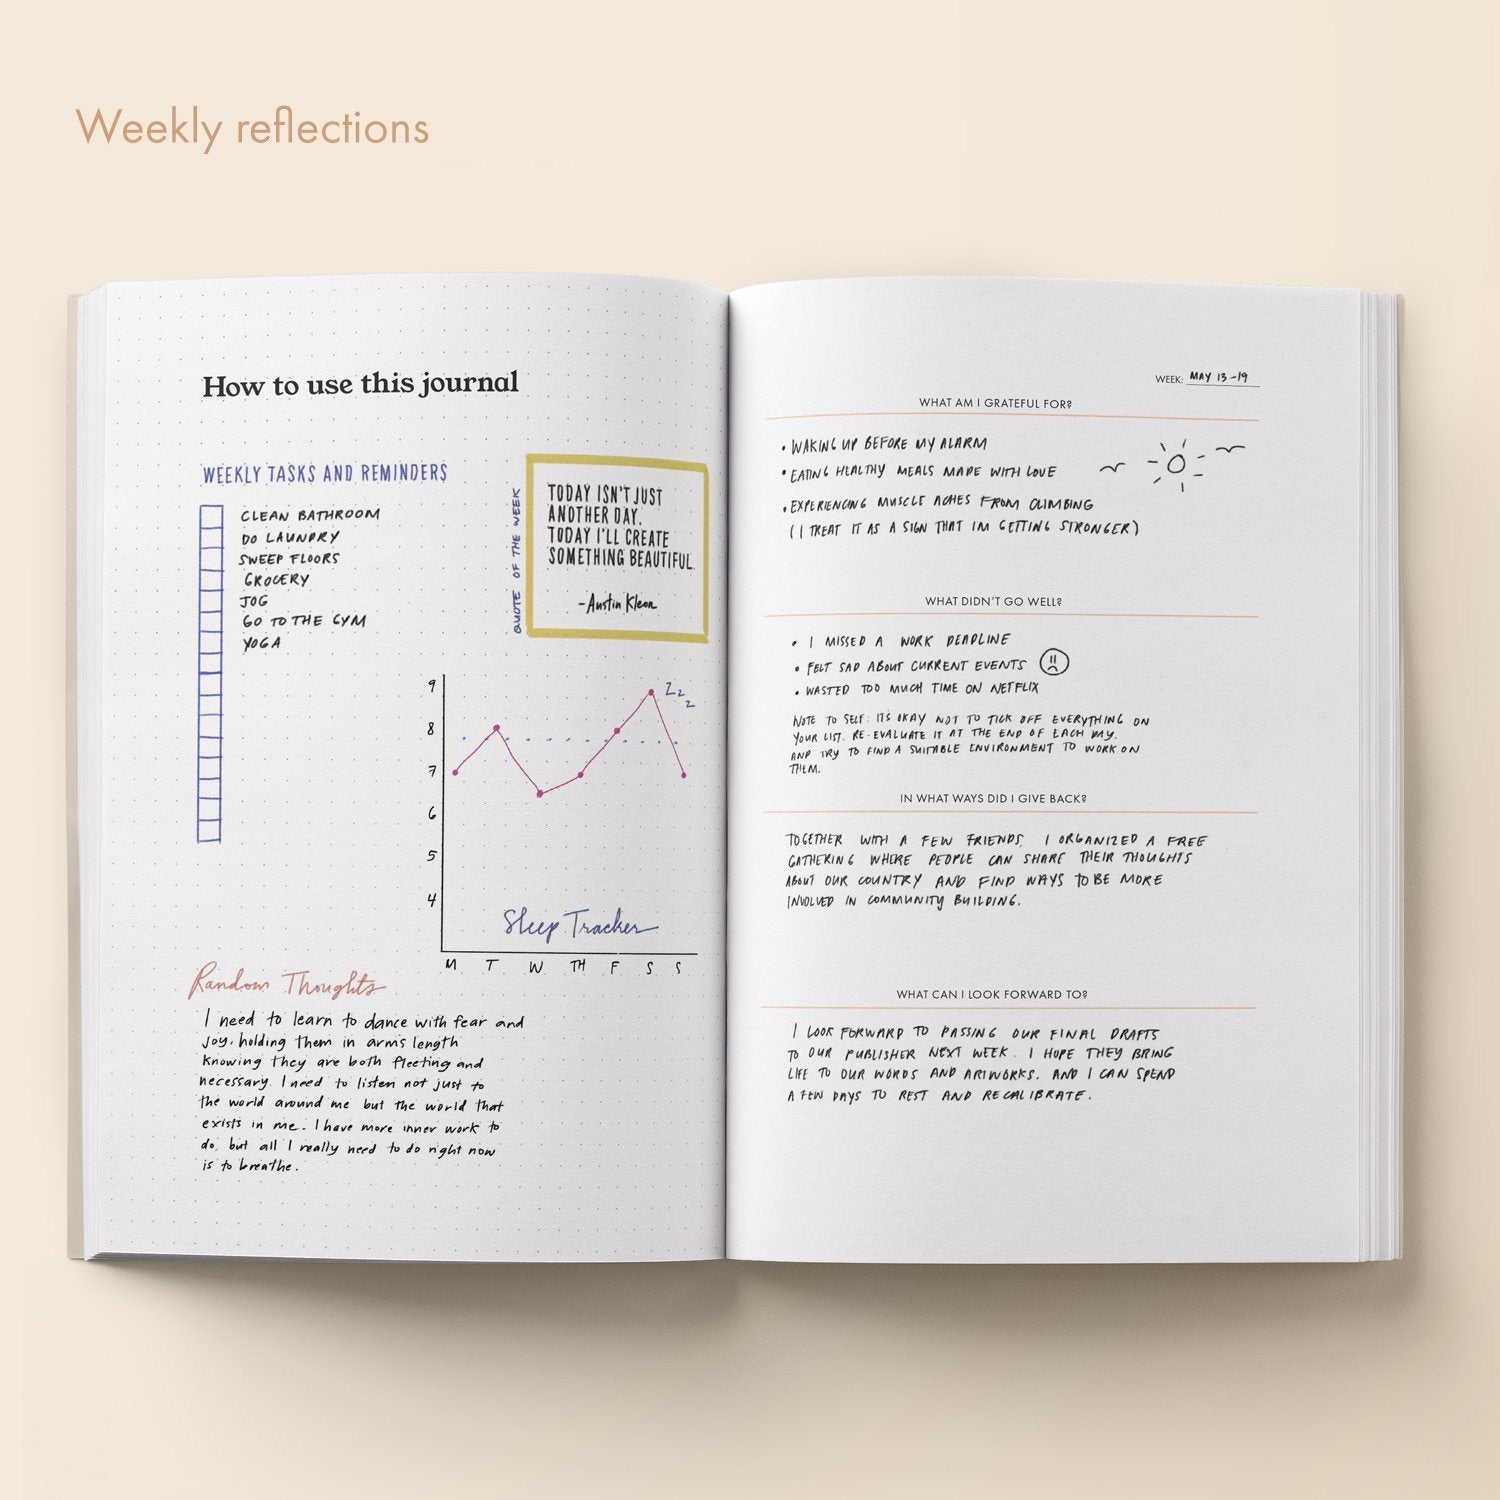 Weekly reflections
How to use this journal
WEEKLY TASKS AND REMINDERS
CLEAN BATHROOM
DO LAUNDRY
SWEEP FLOORS
GROCERY
JOG
GO TO THE GYM
YOGA
QUOTE OF THE WEEK
TODAY ISN'T JUST
ANOTHER DAY.
TODAY I'LL CREATE
SOMETHING BEAUTIFUL.
-Austin Kleon
9
8
7
6
5
4
Zzz
Sleep Tracker
M T W TH F S S
Random Thoughts
I need to learn to dance with fear and
joy, holding them in arms length
knowing they are both fleeting and
necessary. I need to listen not just to
the world around me but the world that
exists in me. I have more inner work to
do, but all I really need to do right now
is to breathe.
WEEK: MAY 13-19
WHAT AM I GRATEFUL FOR?
• WAKING UP BEFORE MY ALARM
• EATING HEALTHY MEALS MADE WITH LOVE
• EXPERIENCING MUSCLE ACHES FROM CLIMBING
(I TREAT IT AS A SIGN THAT IM GETTING STRONGER)
WHAT DIDN'T GO WELL?
• I MISSED A WORK DEADLINE
• FELT SAD ABOUT CURRENT EVENTS
• WASTED TOO MUCH TIME ON NETFLIX
NOTE TO SELF: IT'S OKAY NOT TO TICK OFF EVERYTHING ON
YOUR LIST. RE-EVALUATE IT AT THE END OF EACH DAY.
AND TRY TO FIND A SUITABLE ENVIRONMENT TO WORK ON
THEM.
IN WHAT WAYS DID I GIVE BACK?
TOGETHER WITH A FEW FRIENDS, I ORGANIZED A FREE
GATHERING WHERE PEOPLE CAN SHARE THEIR THOUGHTS
ABOUT OUR COUNTRY AND FIND WAYS TO BE MORE
INVOLVED IN COMMUNITY BUILDING.
WHAT CAN I LOOK FORWARD TO?
I LOOK FORWARD TO PASSING OUR FINAL DRAFTS
TO OUR PUBLISHER NEXT WEEK. I HOPE THEY BRING
LIFE TO OUR WORDS AND ARTWORKS. AND I CAN SPEND
A FEW DAYS TO REST AND RECALIBRATE.